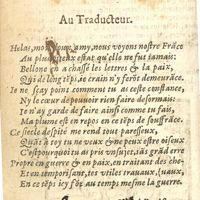 Au Traducteur.
Helas, mon amy, nous voyons nostre Frāce
Au plus estat qu'elle ne fut jamais:
Bellone en a chassé les lettres & la paix,
Qui de long tēps, ie crain n'y ferōt demeurāce.
Ie ne sçay point comment tu as ceste constance,
Ny le cœur de pouuoir rien faire desormais:
Ie n'ay garde de faire ainsi comme tu fais,
Ma plume est en repos en ce tēps de souffrāce.
Ce siecle despité me rend tout paresseux,
Quāt à toy tu ne veux & ne peux estre oiseux
C'est pourquoi tu as pris vn sujet, sās grād
Propre en guerre & en paix, en traitant des
Et en temporisant, tes vtiles trauaux, (auaux,
En ce tēps icy fōt au temps mesme la guerre.